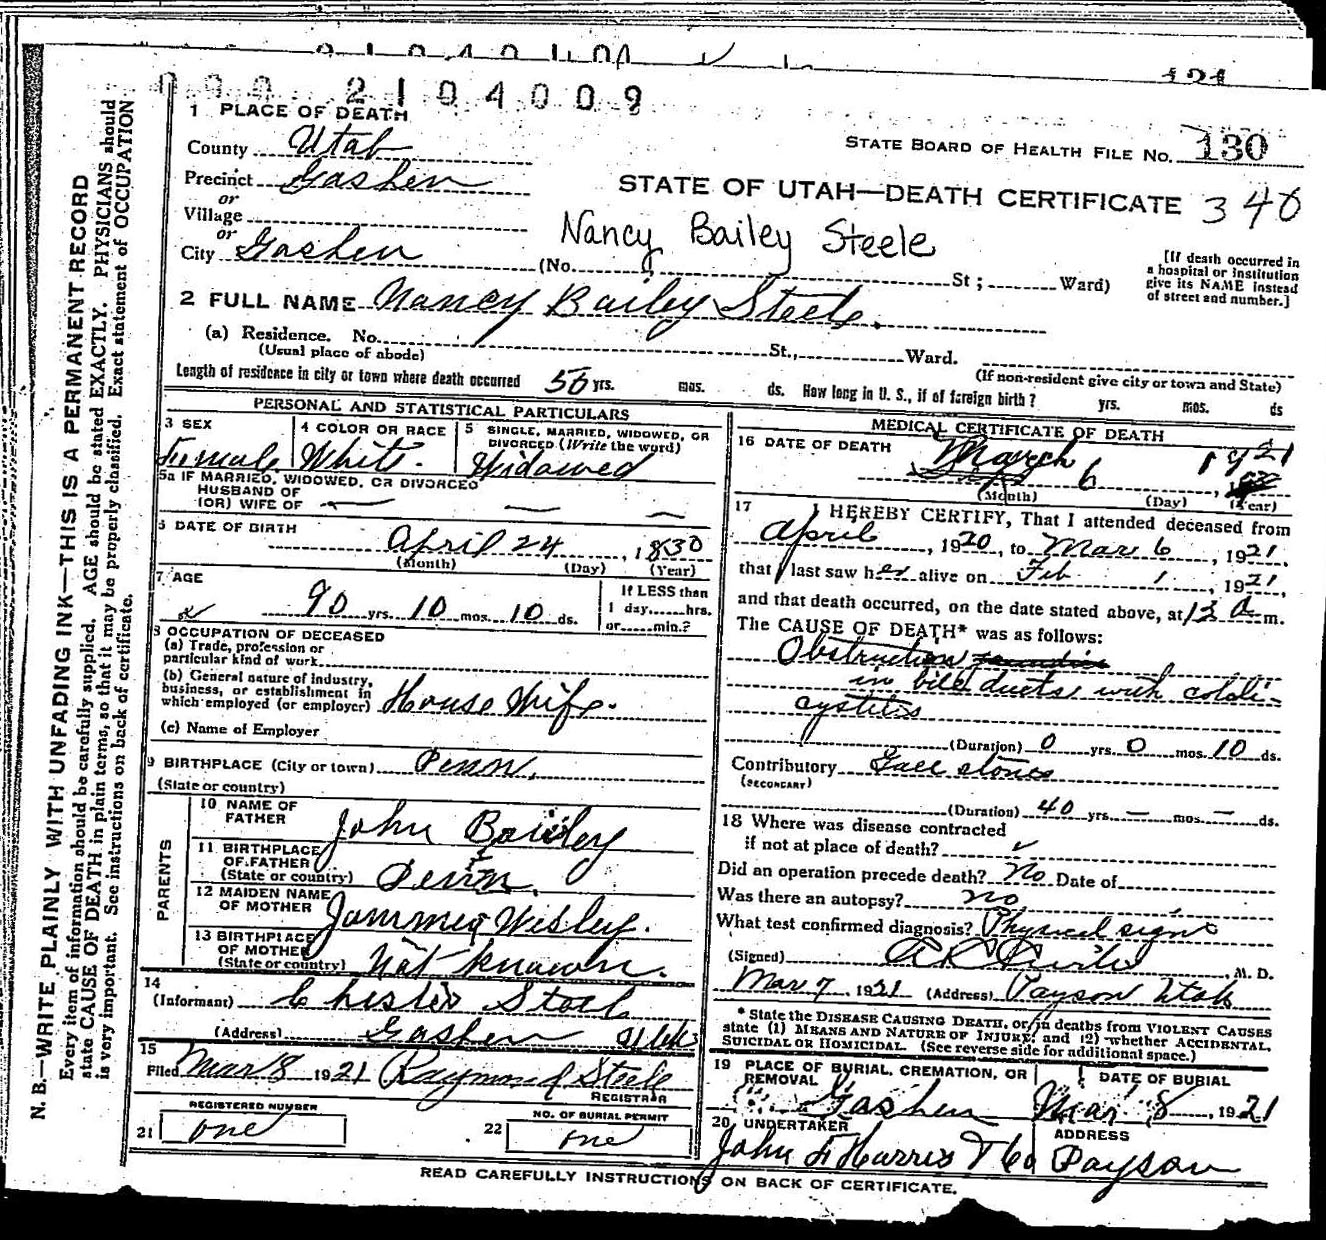 000 2104009
1 PLACE OF DEATH
County Utah
STATE BOARD OF HEALTH FILE No. 130
Precinct Goshen
STATE OF UTAH—DEATH CERTIFICATE 340
or
Village
or
Nancy Bailey Steele
City Goshen (No. St; Ward)
[If death occurred in
a hospital or institution
give its NAME instead
of street and number.]
2 FULL NAME Nancy Bailey Steele.
(a) Residence. No. St., Ward.
(Usual place of abode)
(If non-resident give city or town and State)
Length of residence in city or town where death occurred 56 yrs. mos. ds. How long in U. S., if of foreign birth? yrs. mos. ds
PERSONAL AND STATISTICAL PARTICULARS
3 SEX
Female
4 COLOR OR RACE
White.
5 SINGLE, MARRIED, WIDOWED, OR
DIVORCED (Write the word)
Widowed
5a IF MARRIED, WIDOWED, OR DIVORCED
HUSBAND OF
(OR) WIFE OF — — —
6 DATE OF BIRTH
April 24, 1830
(Month) (Day) (Year)
7 AGE
90 yrs. 10 mos. 10 ds.
If LESS than
1 day......hrs.
or......min.?
8 OCCUPATION OF DECEASED
(a) Trade, profession or
particular kind of work
(b) General nature of industry,
business, or establishment in
which employed (or employer) House Wife.
(c) Name of Employer
9 BIRTHPLACE (City or town) Penn.
(State or country)
PARENTS
10 NAME OF
FATHER John Bailey
11 BIRTHPLACE
OF FATHER
(State or country) Penn.
12 MAIDEN NAME
OF MOTHER Wesley.
13 BIRTHPLACE
OF MOTHER
(State or country) Not known.
14
(Informant) Steel
(Address) Goshen Utah
15
Filed Mar 8 1921 Raymond Steele
REGISTRAR
REGISTERED NUMBER
21 one
NO. OF BURIAL PERMIT
22 one
MEDICAL CERTIFICATE OF DEATH
16 DATE OF DEATH March 6 1921
(Month) (Day) (Year)
17 I HEREBY CERTIFY, That I attended deceased from
April, 1920, to Mar 6, 1921,
that I last saw her alive on Feb 1, 1921,
and that death occurred, on the date stated above, at a m.
The CAUSE OF DEATH* was as follows:
Obstruction
in bile ducts with
(Duration) 0 yrs. 0 mos. 10 ds.
Contributory Gall stones
(SECONDARY)
(Duration) 40 yrs. — mos. — ds.
18 Where was disease contracted
if not at place of death?
Did an operation precede death? No Date of
Was there an autopsy? no
What test confirmed diagnosis? Physical signs
(Signed) M. D.
Mar 7, 1921 (Address) Payson Utah
* State the DISEASE CAUSING DEATH, or, in deaths from VIOLENT CAUSES
state (1) MEANS AND NATURE OF INJURY; and (2) whether ACCIDENTAL,
SUICIDAL OR HOMICIDAL. (See reverse side for additional space.)
19 PLACE OF BURIAL, CREMATION, OR
REMOVAL Goshen
DATE OF BURIAL
Mar 8, 1921
20 UNDERTAKER
John F Harris & Co
ADDRESS
Payson
READ CAREFULLY INSTRUCTIONS ON BACK OF CERTIFICATE.
N. B.—WRITE PLAINLY WITH UNFADING INK—THIS IS A PERMANENT RECORD
Every item of information should be carefully supplied. AGE should be stated EXACTLY. PHYSICIANS should
state CAUSE OF DEATH in plain terms, so that it may be properly classified. Exact statement of OCCUPATION
is very important. See instructions on back of certificate.